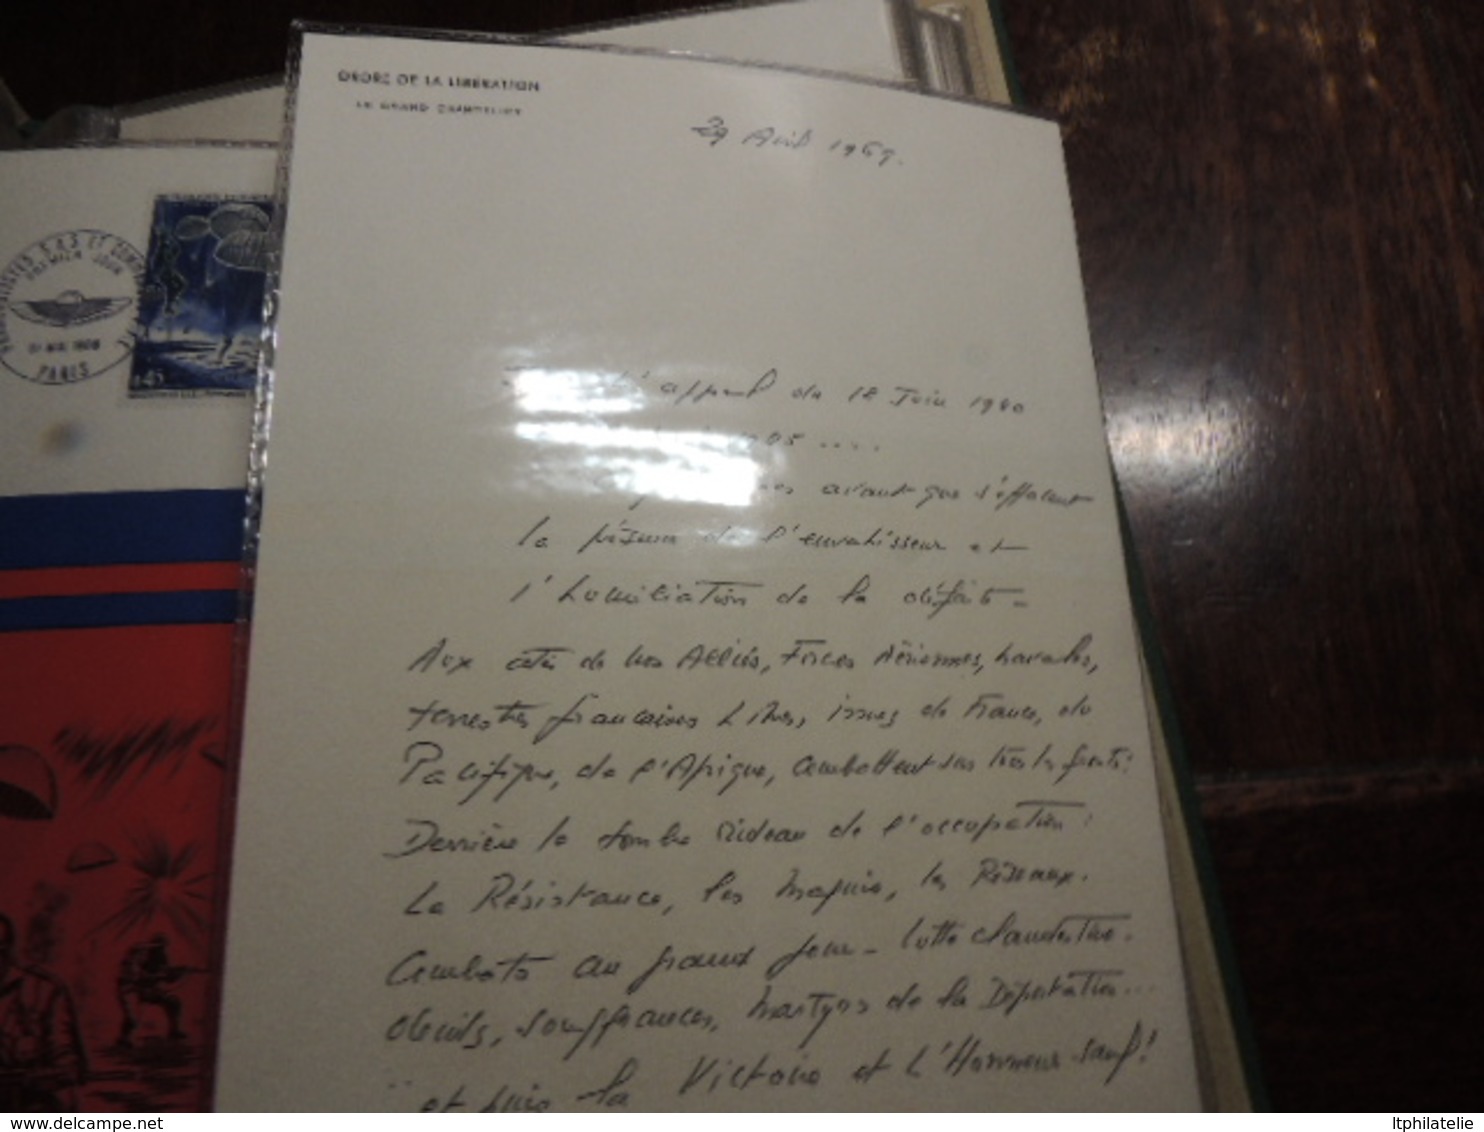 ORDRE DE LA LIBÉRATION
LE GRAND CHANCELIER
29 Avril 1969.
PREMIER JOUR
PARIS
0,45
l'appel du 18 Juin 1940
....
avant que s'effacent
la présence de l'envahisseur et
l'humiliation de la défaite -
Aux côtés de nos Alliés, Forces Aériennes, navales,
terrestres françaises Libres, issues de France, du
Pacifique, de l'Afrique, combattent sur tous les fronts :
Derrière le sombre rideau de l'occupation :
La Résistance, les Maquis, les Réseaux.
Combats au grand jour - lutte clandestine.
deuils, souffrances, martyrs de la Déportation...
.. et puis la Victoire et L'Honneur sauf !
delcampe.net
ltphilatelie